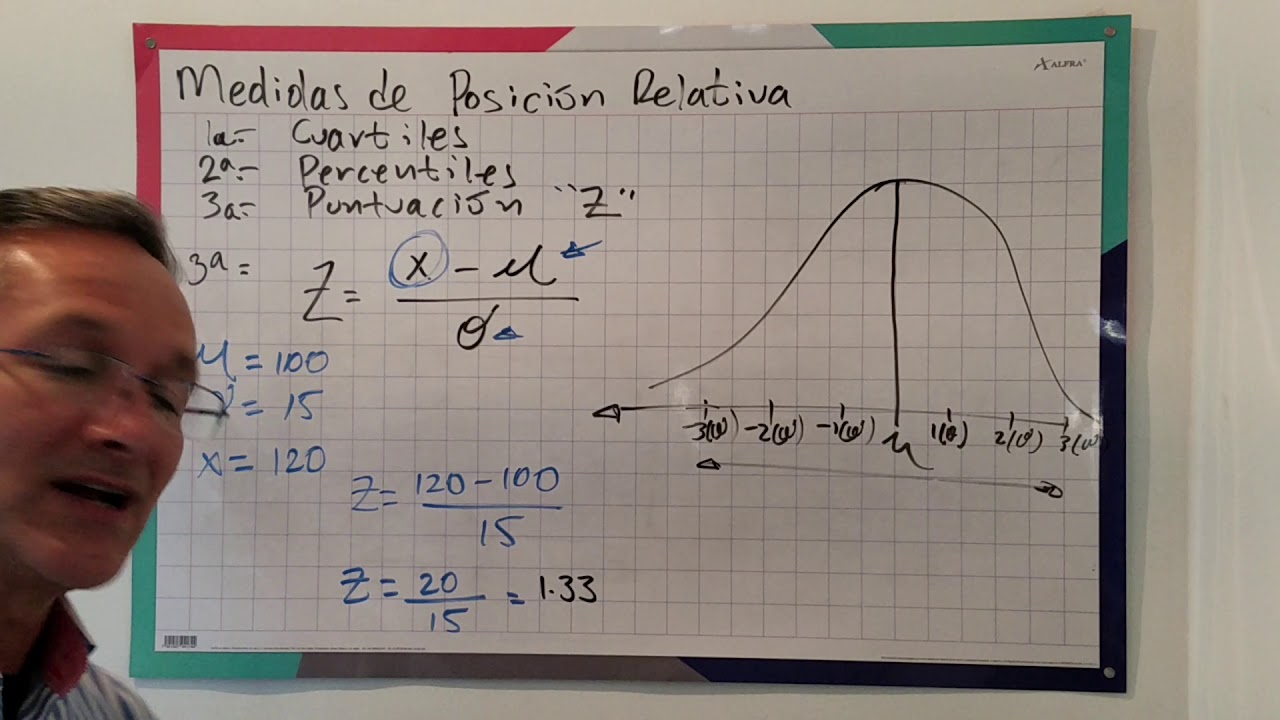 Medidas de Posición Relativa
ALFRA
1a= Cuartiles
2a= Percentiles
3a= Puntuación "Z"
3a= Z = x - μ / σ
μ = 100
= 15
x = 120
Z = 120 - 100 / 15
Z = 20 / 15 = 1.33
-3(σ) -2(σ) -1(σ) μ 1(σ) 2(σ) 3(σ)